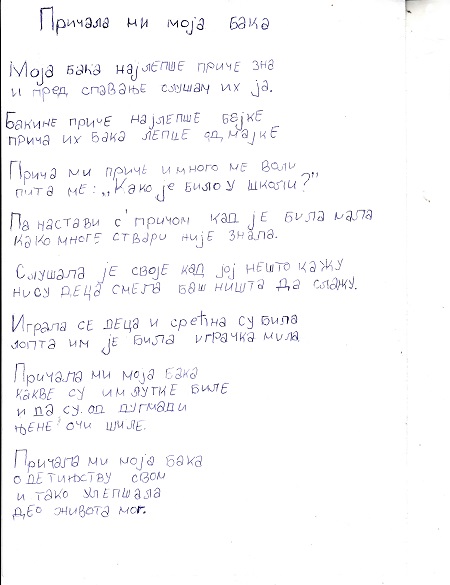 Причала ми моја бака
Моја бака најлепше приче зна
и пред спавање слушам их ја.
Бакине приче најлепше бајке
прича их бака лепше од мајке
Прича ми приче и много ме воли
пита ме: „Како је било у школи?"
Па настави с' причом кад је била мала
како многе ствари није знала.
Слушала је своје кад јој нешто кажу
нису деца смела баш ништа да слажу.
Играла се деца и срећна су била
лопта им је била играчка мила
Причала ми моја бака
какве су им лутке биле
и да су од дугмади
њене очи шиле.
Причала ми моја бака
о детињству свом
и тако улепшала
део живота мог.